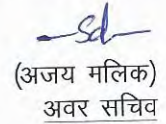 Sd-
(अजय मलिक)
अवर सचिव